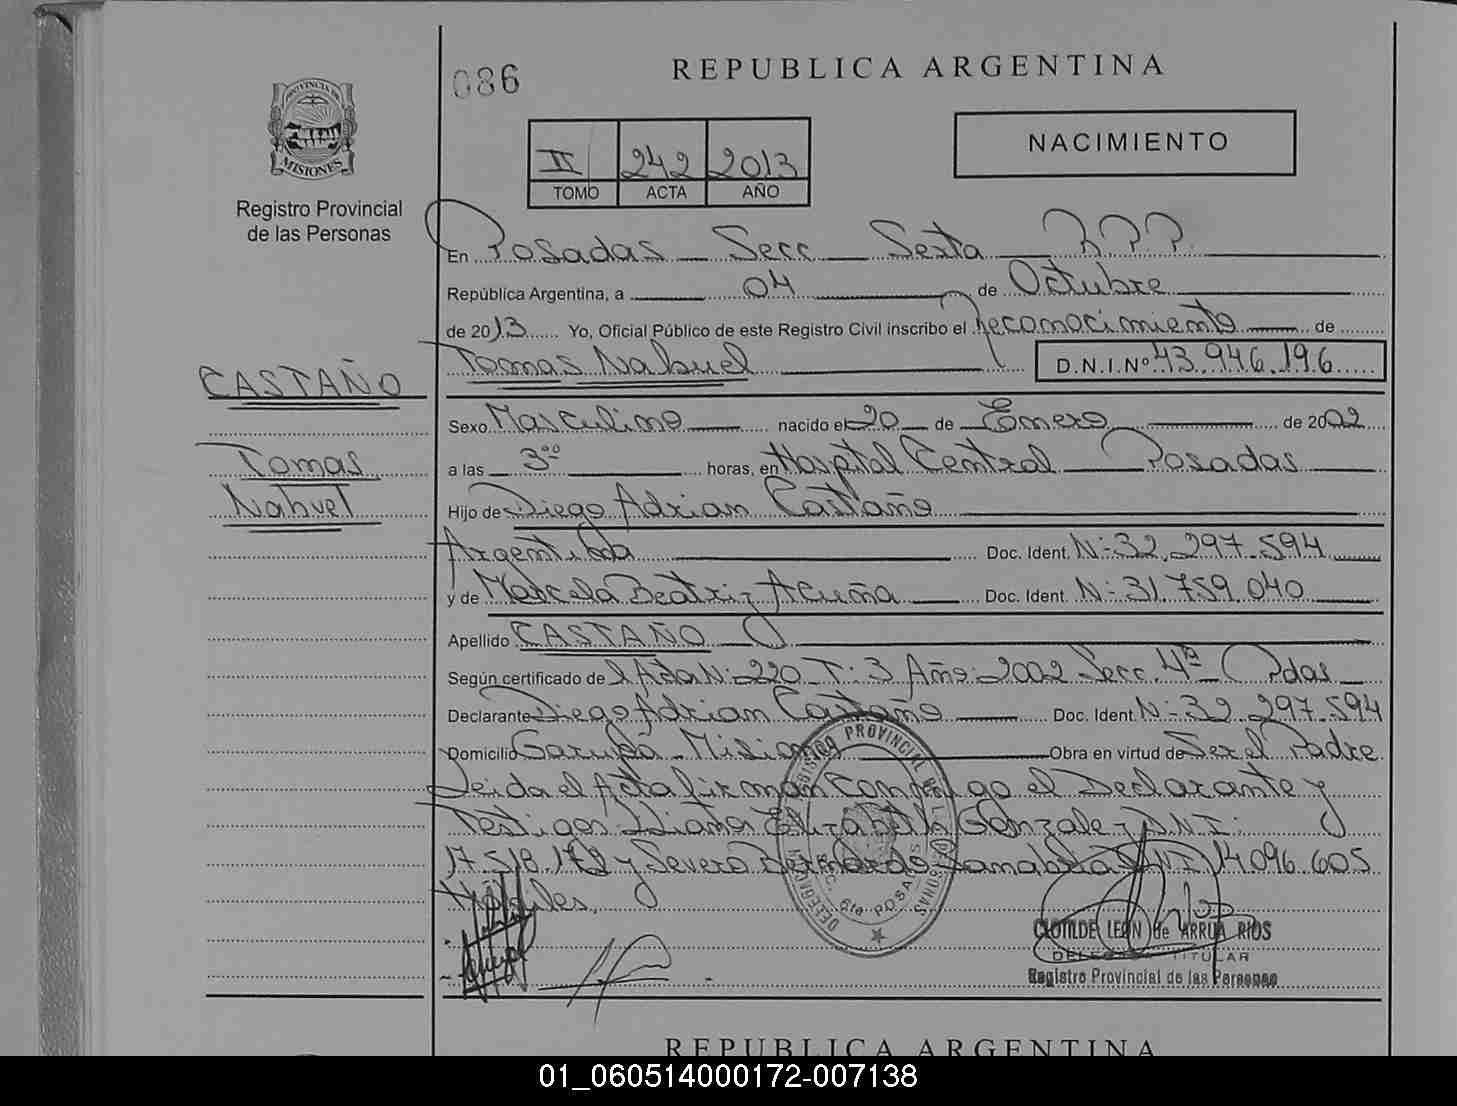 086
REPUBLICA ARGENTINA
PROVINCIA DE
MISIONES
Registro Provincial
de las Personas
II 242 2013
TOMO ACTA AÑO
NACIMIENTO
En Posadas Secc Sexta R.P.P.
República Argentina, a 04 de Octubre
de 2013 Yo, Oficial Público de este Registro Civil inscribo el Reconocimiento de
Tomas Nahuel D.N.I.Nº 43.946.196
CASTAÑO
Tomas
Nahuel
Sexo Masculino nacido el 20 de Enero de 2002
a las 3⁰⁰ horas, en Hospital Central Posadas
Hijo de Diego Adrian Castaño
Argentina Doc. Ident. N: 32.297.594
y de Marcela Beatriz Acuña Doc. Ident. N: 31.759.040
Apellido CASTAÑO
Según certificado de l Acta N: 220 T: 3 Año: 2002 Secc. 4ª Pdas
Declarante Diego Adrian Castaño Doc. Ident. N: 32.297.594
Domicilio Garupá - Misiones Obra en virtud de Ser el Padre
Leida el Acta firman conmigo el Declarante y
Testigos: Elizabeth Gonzalez D.N.I:
17.518.172 y Severo Bernardo D.N.I 14.096.605
Hábiles.
REGISTRO PROVINCIAL DE LAS PERSONAS
SECC. 6ta POSADAS
CLOTILDE LEON de ARRUA RIOS
DELEGADA TITULAR
Registro Provincial de las Personas
REPUBLICA ARGENTINA
01_060514000172-007138